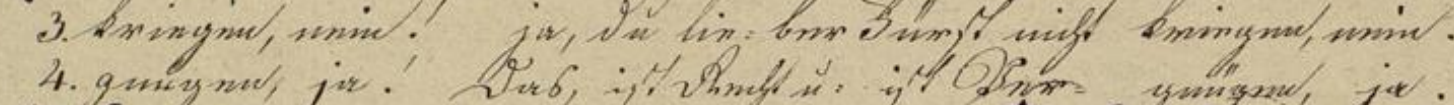 3. kriegen, nein! ja, du lie- ber Fürst nicht kriegen, nein.
4. gnügen, ja! Das, ist Recht u. ist Ver- gnügen, ja.